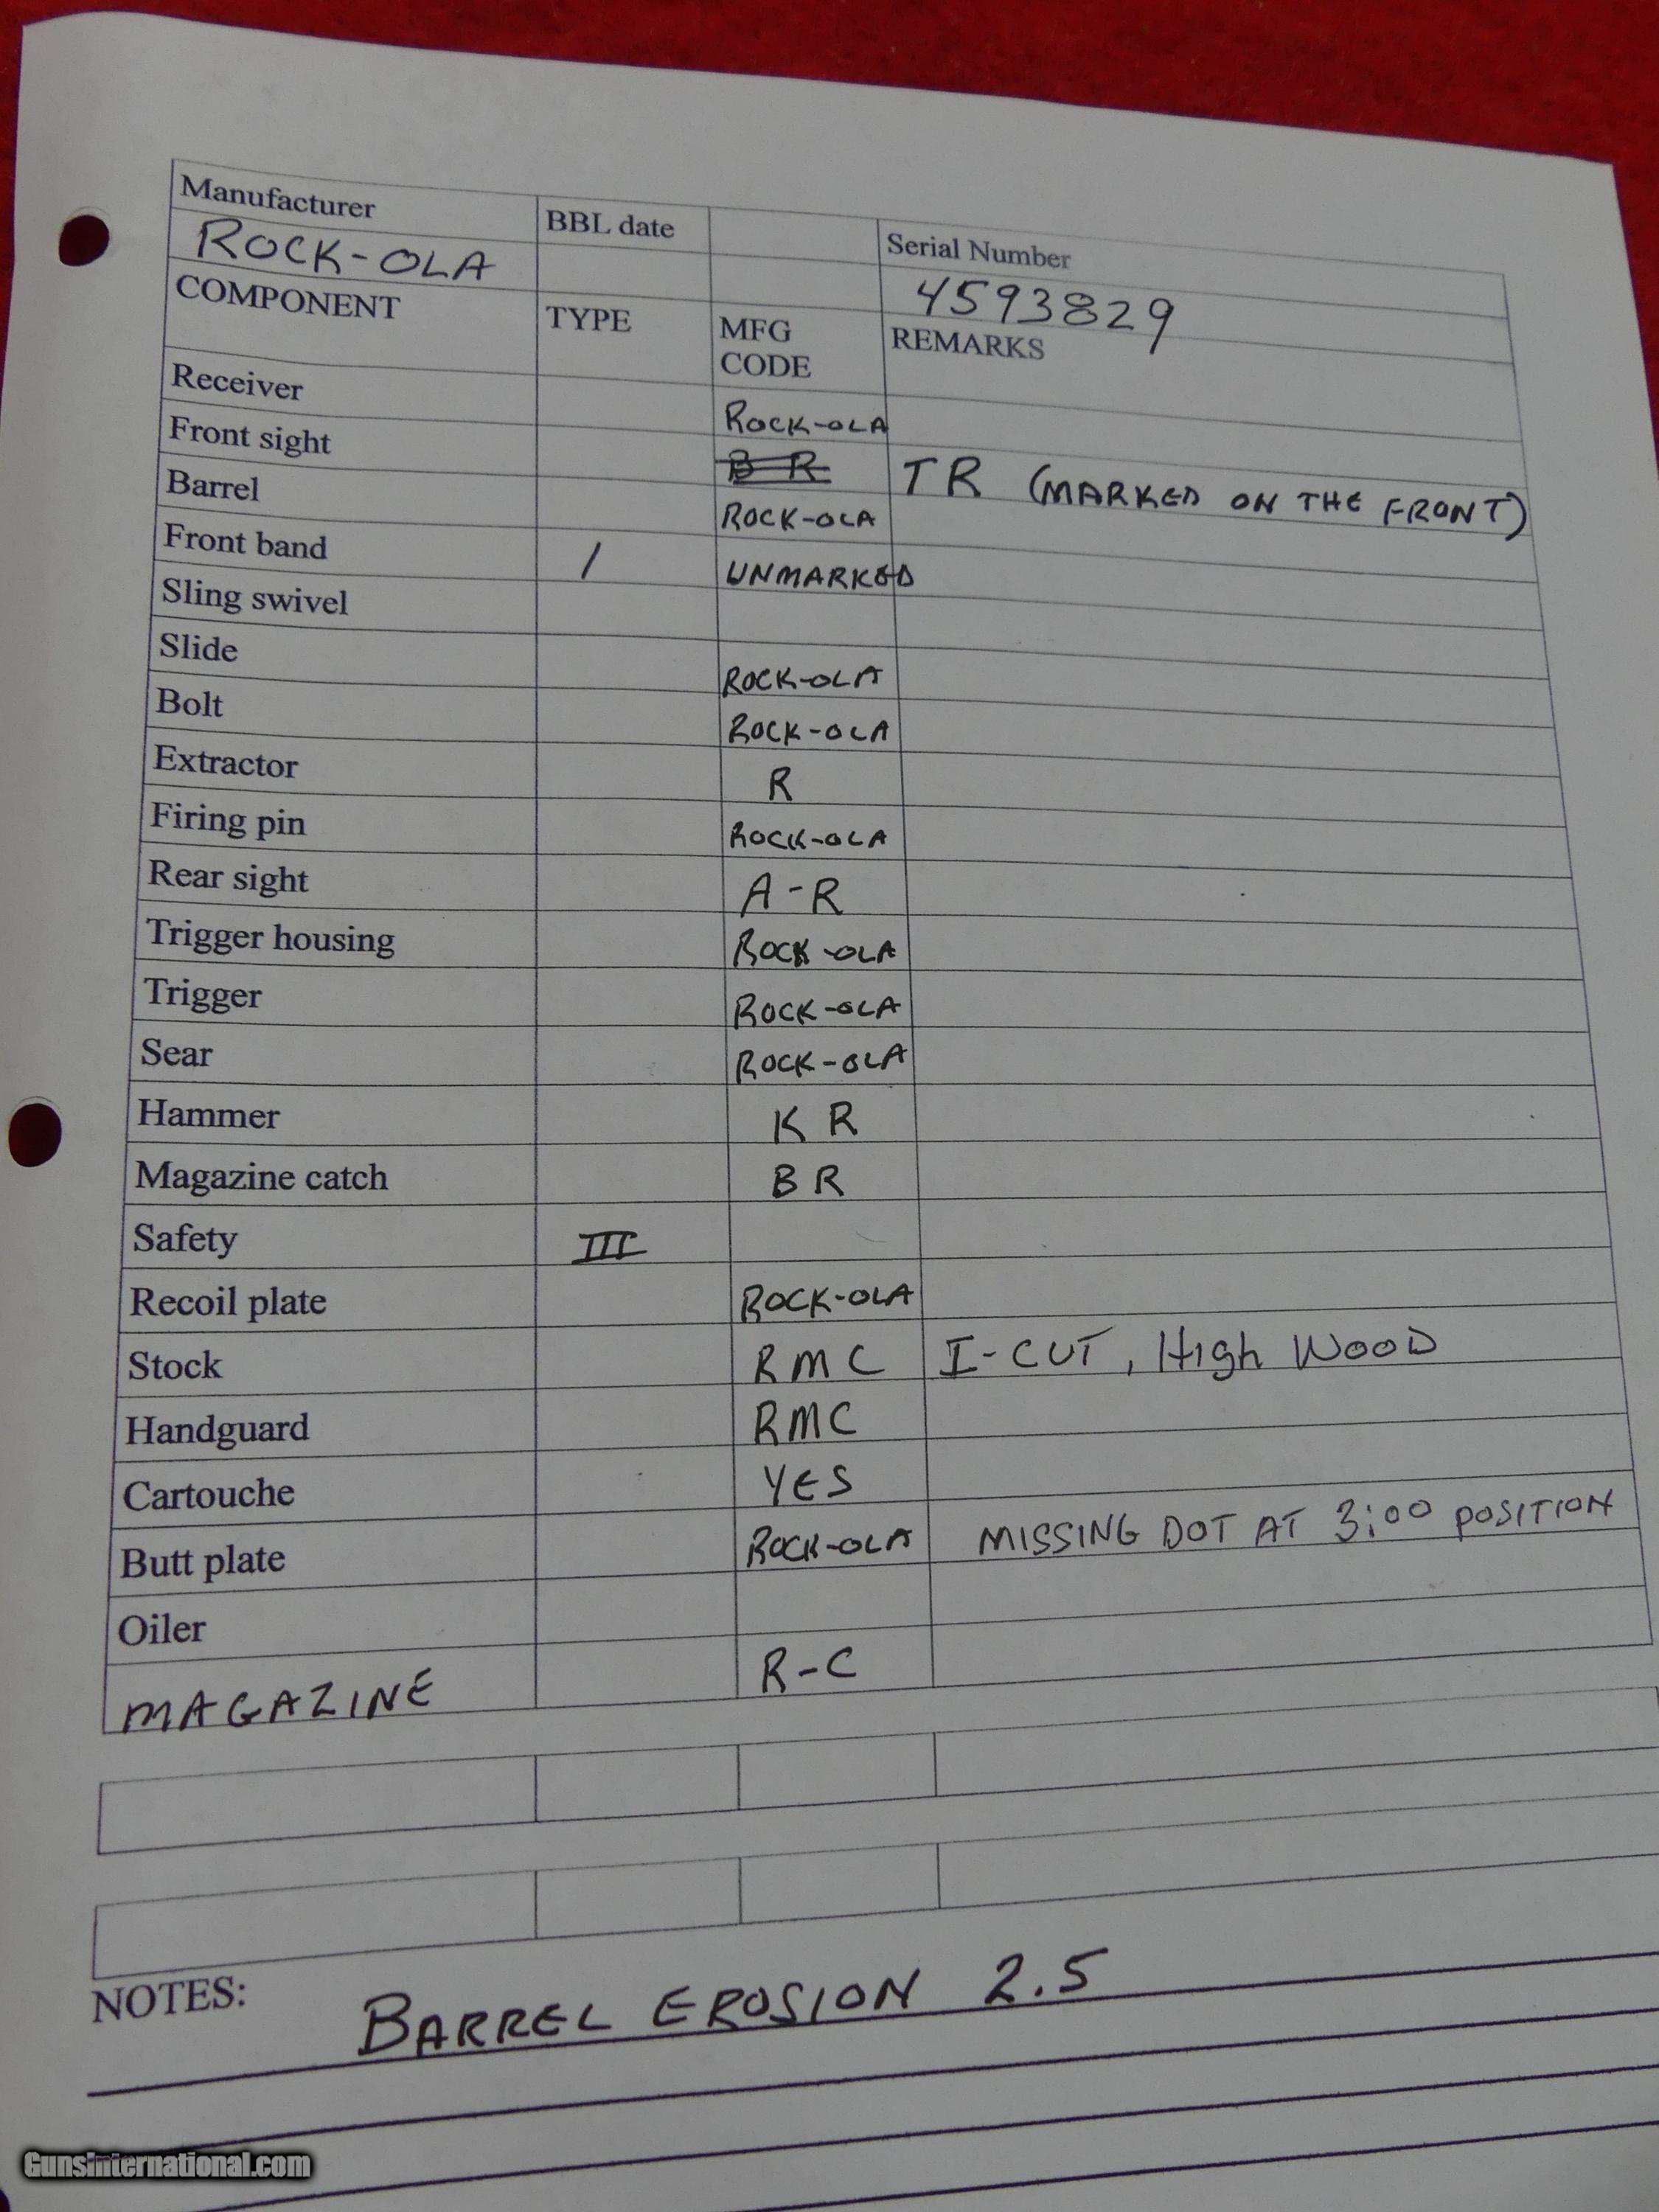 Manufacturer BBL date Serial Number
ROCK-OLA 4593829
COMPONENT TYPE MFG CODE REMARKS
Receiver ROCK-OLA
Front sight B R TR (MARKED ON THE FRONT)
Barrel ROCK-OLA
Front band / UNMARKED
Sling swivel
Slide ROCK-OLA
Bolt ROCK-OLA
Extractor R
Firing pin ROCK-OLA
Rear sight A-R
Trigger housing ROCK-OLA
Trigger ROCK-OLA
Sear ROCK-OLA
Hammer K R
Magazine catch B R
Safety III
Recoil plate ROCK-OLA
Stock RMC I-CUT, High WOOD
Handguard RMC
Cartouche YES
Butt plate ROCK-OLA MISSING DOT AT 3:00 POSITION
Oiler
MAGAZINE R-C
NOTES: BARREL EROSION 2.5
GunsInternational.com